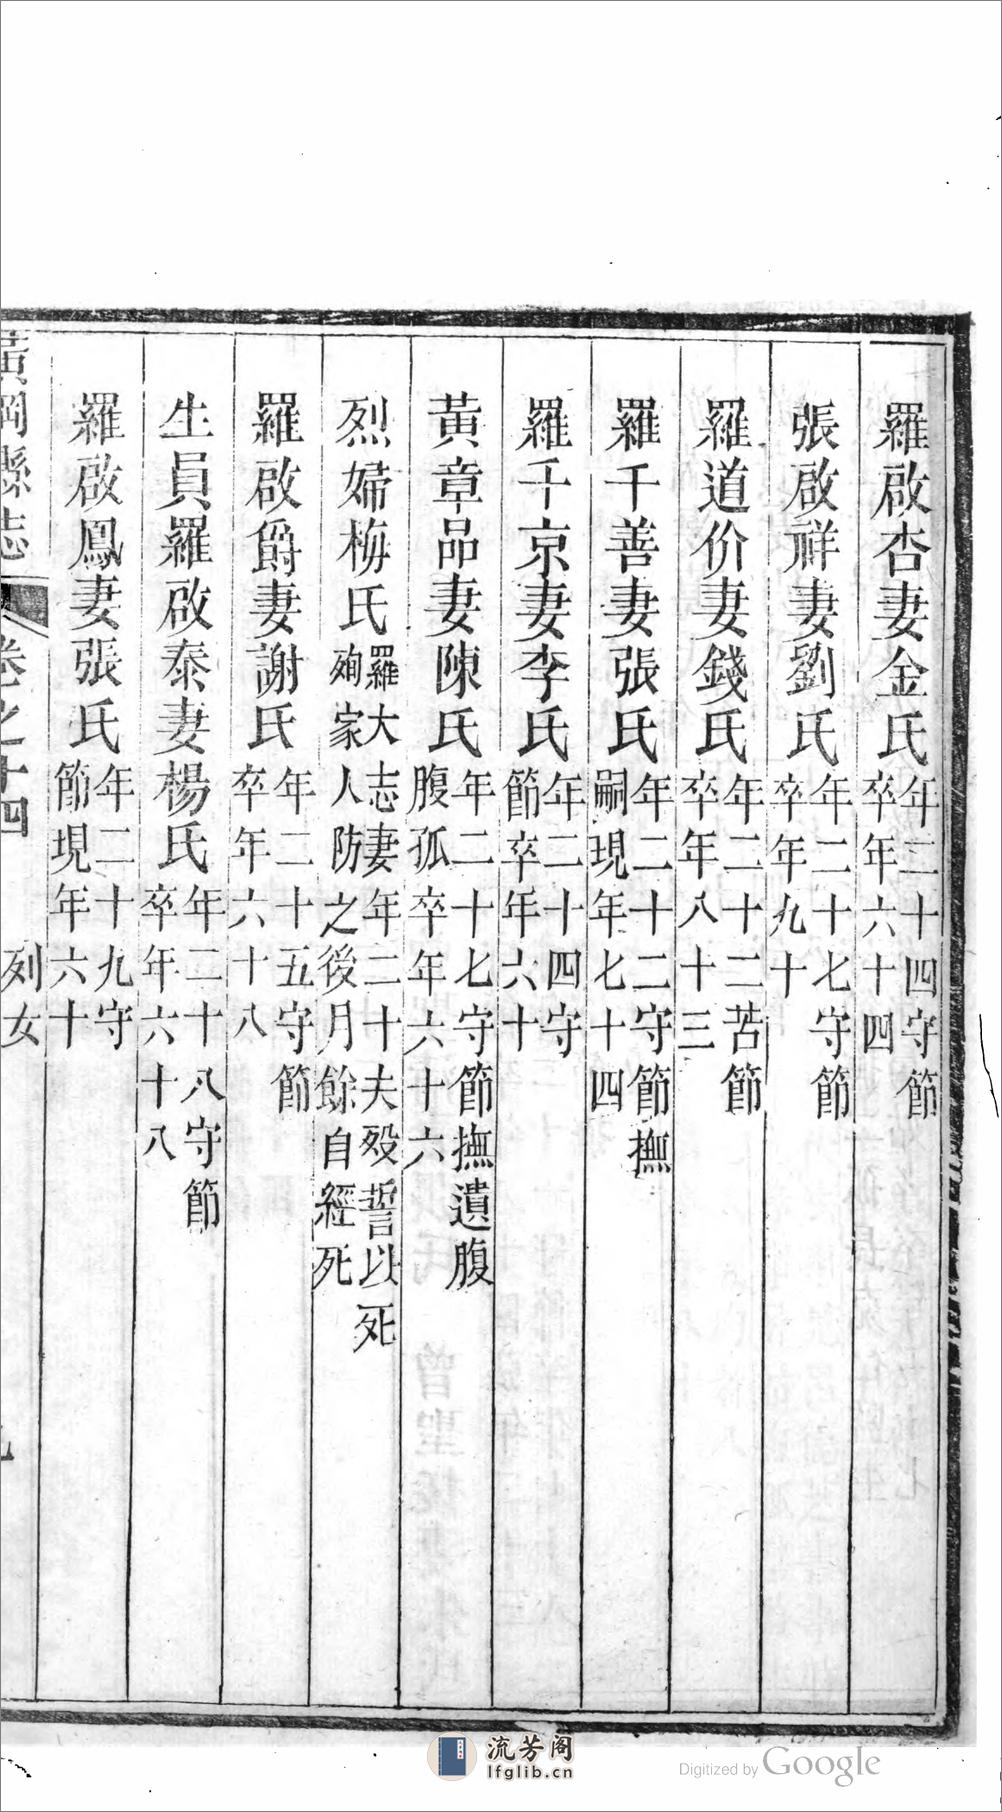 羅啟杏妻金氏年二十四守節卒年六十四
張啟祥妻劉氏年二十七守節卒年九十
羅道价妻錢氏年二十二苦節卒年八十三
羅千善妻張氏年二十二守節撫嗣現年七十四
羅千京妻李氏年二十四守節卒年六十
黃章品妻陳氏年二十七守節撫遺腹腹孤卒年六十六
烈婦梅氏羅大志妻年二十夫歿誓以死殉家人防之後月餘自經死
羅啟爵妻謝氏年二十五守節卒年六十八
生員羅啟泰妻楊氏年二十八守節卒年六十八
羅啟鳳妻張氏年二十九守節現年六十
黃岡縣志 卷之十四 列女 九
流芳阁
lfglib.cn
Digitized by Google